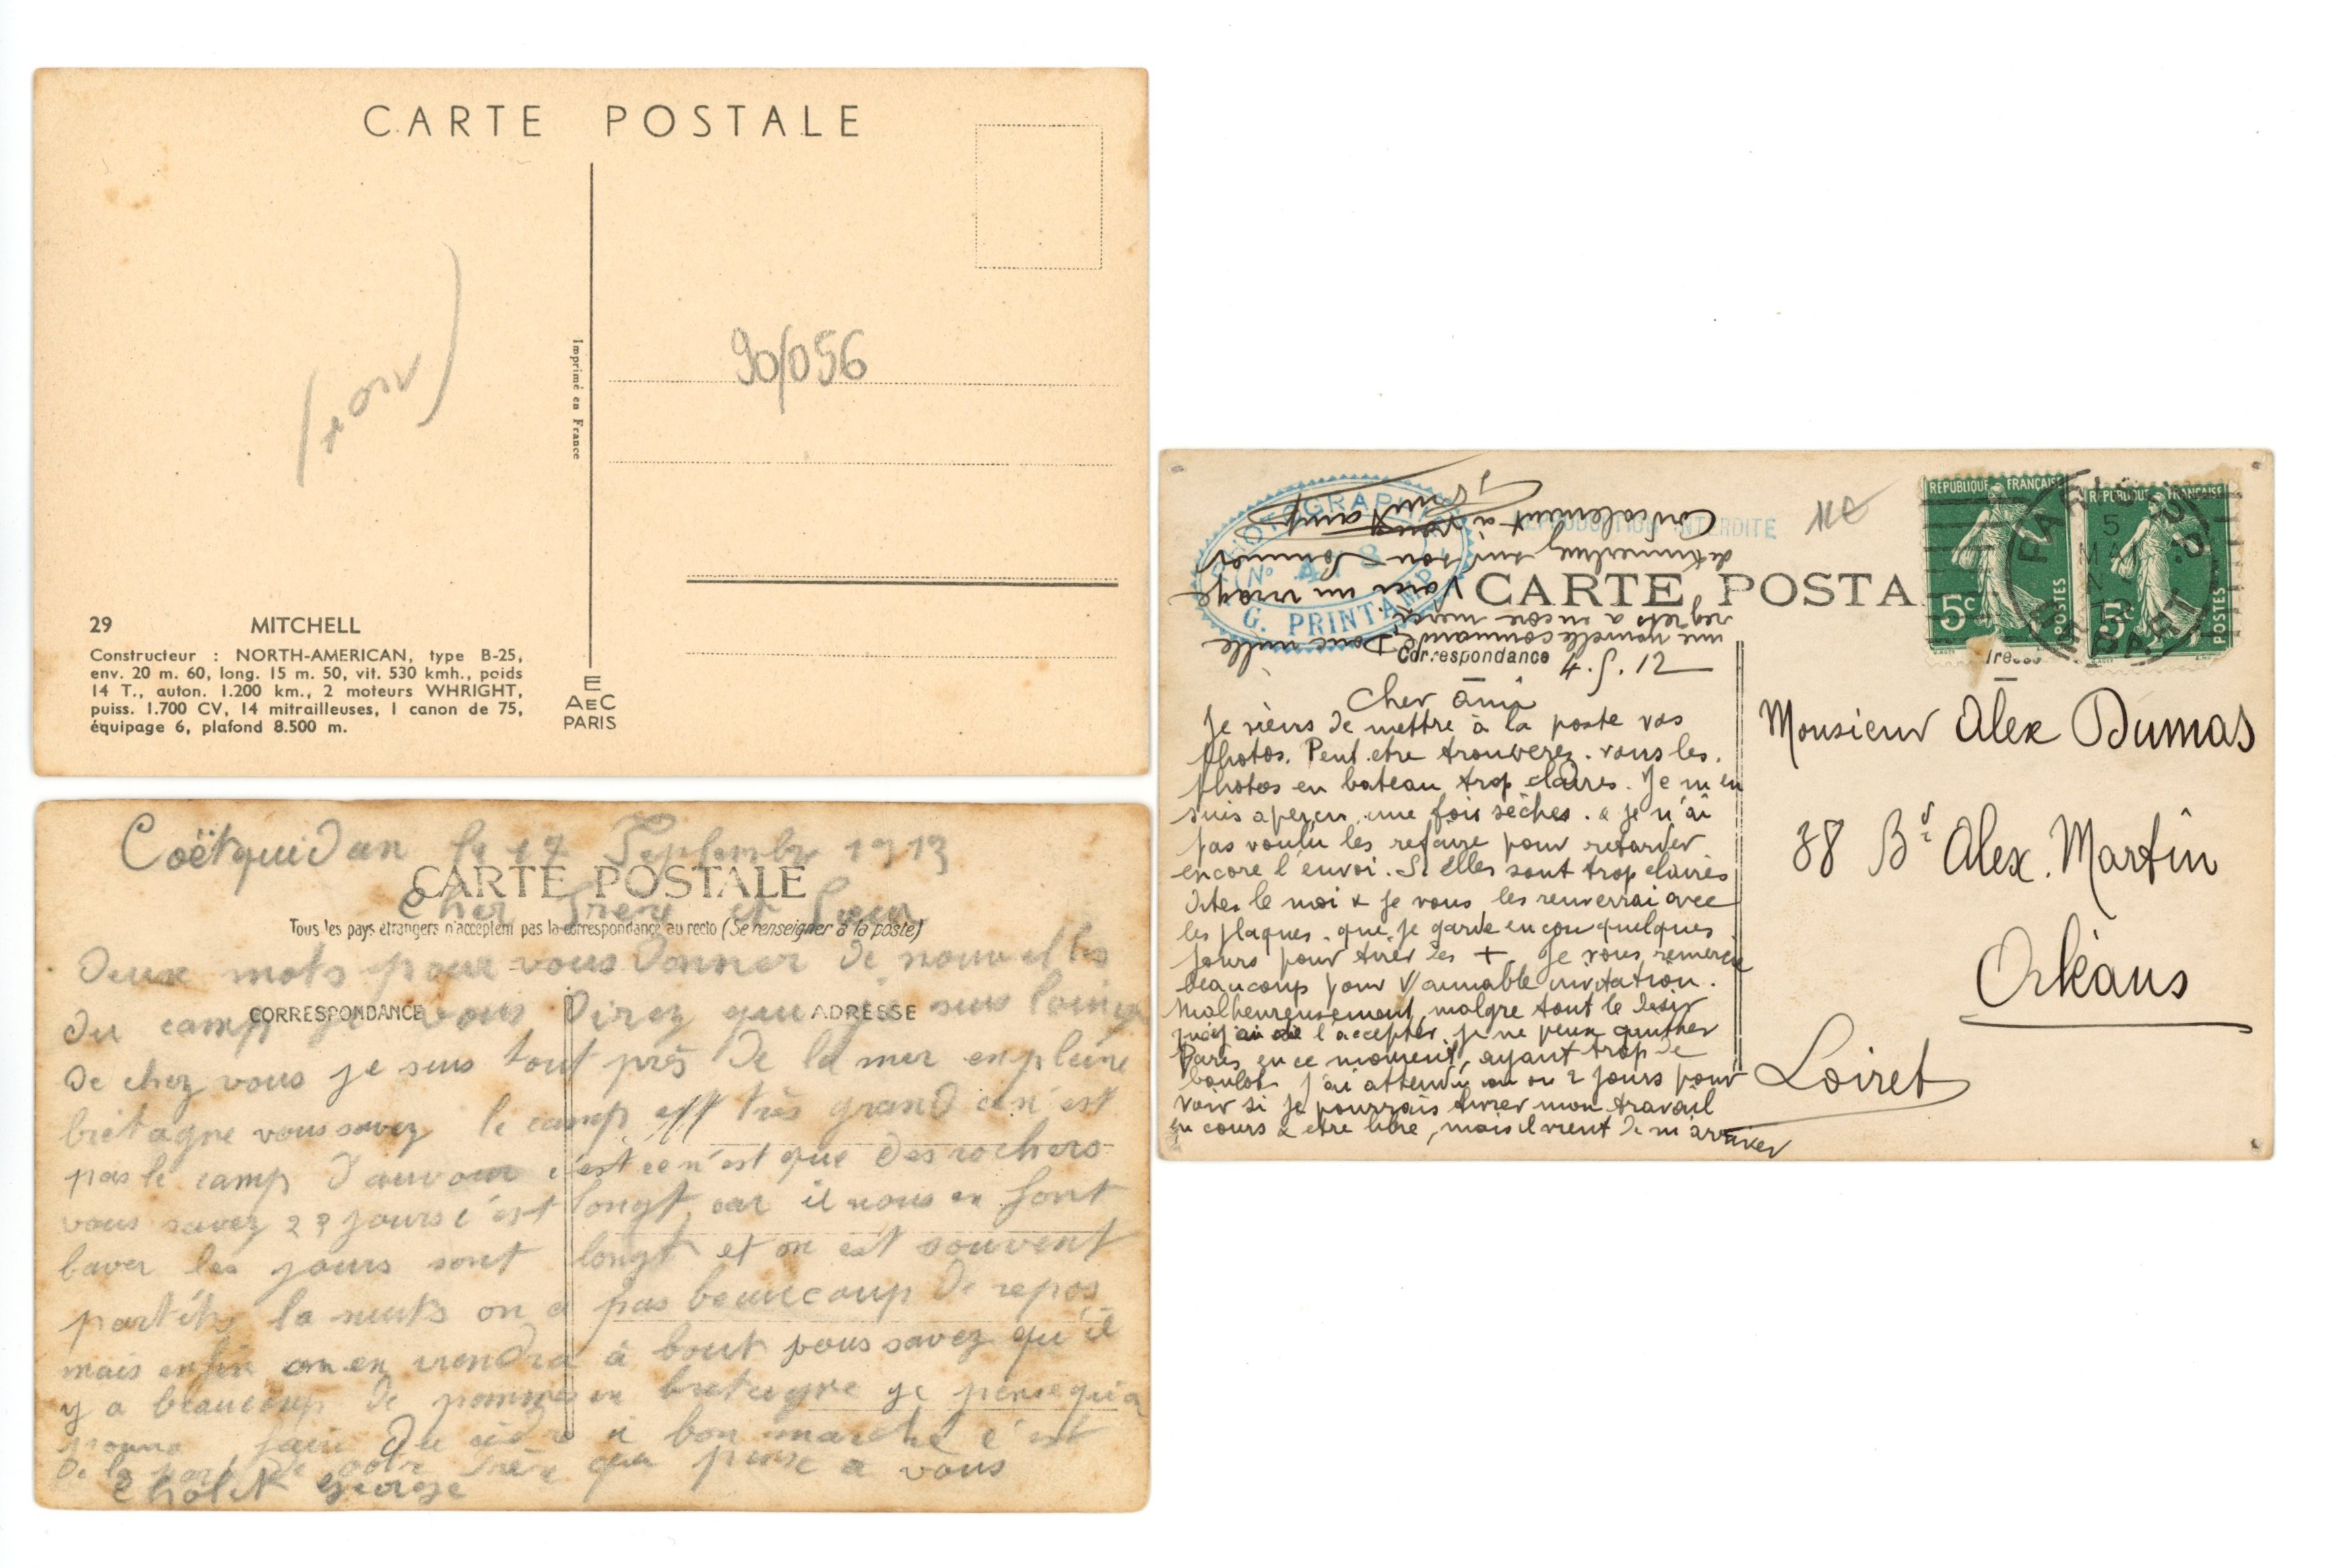 CARTE POSTALE
90/056
Imprimé en France
29 MITCHELL
Constructeur : NORTH-AMERICAN, type B-25,
env. 20 m. 60, long. 15 m. 50, vit. 530 kmh., poids
14 T., auton. 1.200 km., 2 moteurs WHRIGHT,
puiss. 1.700 CV, 14 mitrailleuses, 1 canon de 75,
équipage 6, plafond 8.500 m.
E
AEC
PARIS
Coëtquidan le 17 Septembre 1913
CARTE POSTALE
Cher frère et Sœur
Tous les pays étrangers n'acceptent pas la correspondance au recto (Se renseigner à la poste)
Deux mots pour vous donner de nouvelles
CORRESPONDANCE
ADRESSE
du camp je vous direz que je suis loin
de chez vous je suis tout près de la mer en pleine
bretagne vous savez le camp est très grand ce n'est
pas le camp d'auvour c'est ce n'est que des rochers
vous savez 23 jours c'est longt, car il nous en font
baver les jours sont longt et on est souvent
partits la nuits on a pas beaucoup de repos
mais enfin on en viendra à bout vous savez qu'il
y a beaucoup de pommes en bretagne je pense qu'on
pourra faire du cidre a bon marché c'est
de la part de votre frère qui pense a vous
Cholet George
PHOTOGRAPHIE
No 478
G. PRINTAMP
REPRODUCTION INTERDITE
1€
CARTE POSTA
Correspondance
REPUBLIQUE FRANÇAISE
5c
POSTES
REPUBLIQUE FRANÇAISE
5c
POSTES
PARIS
5
MAI
12
DEPART
4.5.12
Cher ami
Je viens de mettre à la poste vos
photos. Peut etre trouverez-vous les
photos en bateau trop claires. Je m'en
suis aperçu une fois sèches. & je n'ai
pas voulu les refaire pour retarder
encore l'envoi. Si elles sont trop claires
dites le moi & je vous les renverrai avec
les plaques. que je garde encore quelques
jours pour tirer les +. Je vous remercie
beaucoup pour l'aimable invitation.
Malheureusement, malgre tout le desir
que j'ai de l'accepter, je ne peux quitter
Paris en ce moment, ayant trop de
boulot. J'ai attendu un ou 2 jours pour
voir si je pourrais livrer mon travail
en cours & etre libre, mais il vient de m'arriver
une nouvelle commande. Donc mille
regrets & encore merci.
Voici un virage
de Kimmerling sur son Sommer
Cordialement à vous
Monsieur Alex Dumas
38 Bd Alex. Martin
Orléans
Loiret